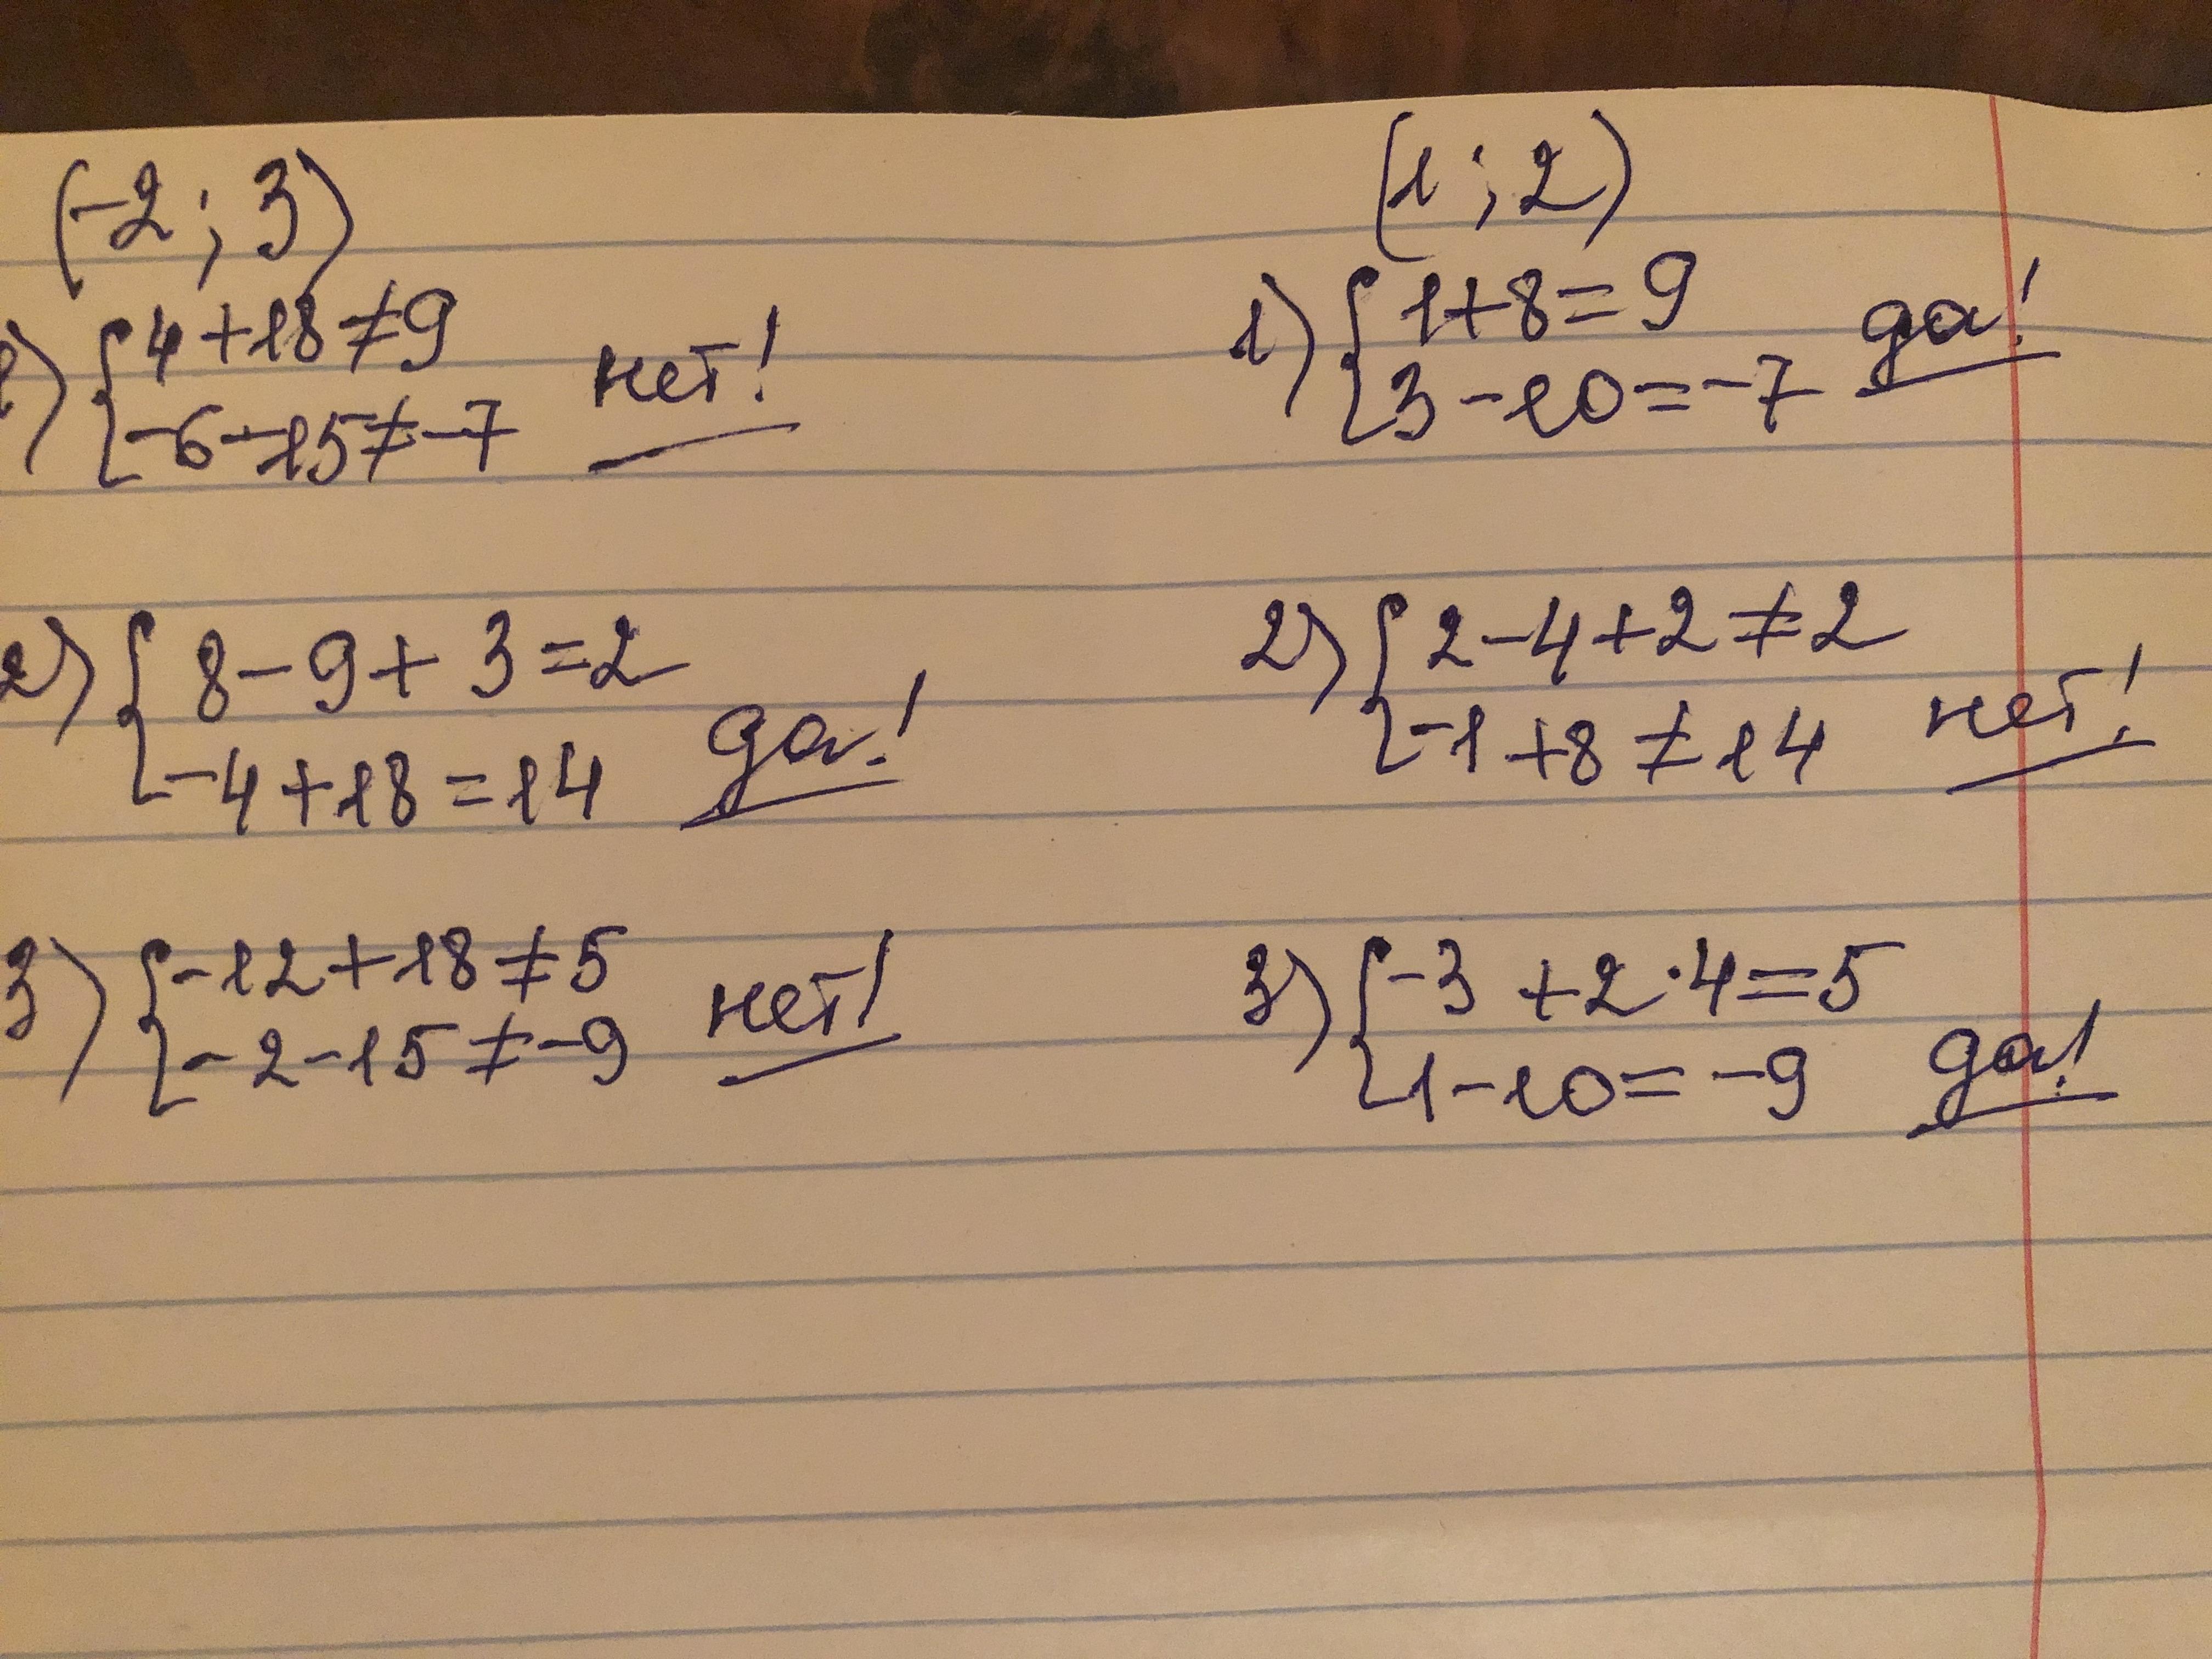 (-2 ; 3)
1) { 4 + 18 ≠ 9
-6 - 15 ≠ -7 нет!
2) { 8 - 9 + 3 = 2
-4 + 18 = 14 да!
3) { -12 + 18 ≠ 5
-2 - 15 ≠ -9 нет!
(1 ; 2)
1) { 1 + 8 = 9
3 - 10 = -7 да!
2) { 2 - 4 + 2 ≠ 2
-1 + 8 ≠ 14 нет!
3) { -3 + 2 · 4 = 5
1 - 10 = -9 да!